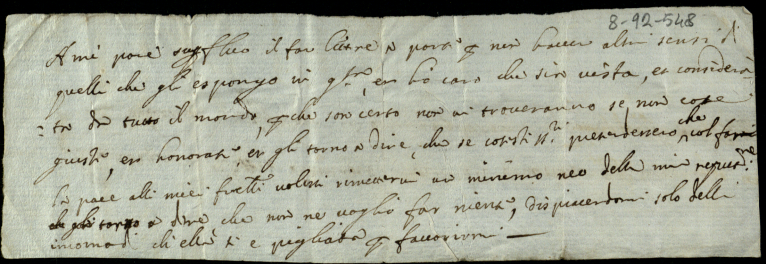 8-92-548
A me pare superfluo il far lettere a parte p non haver altri sensi di
quelli che gli espongo in qta, et ho caro che sia vista, et considera
ta da tutto il mondo, p che son certo non vi troveranno se non cose
giuste, et honorate et gli torno a dire, che se cotesti SSri pretendessero che col farmi
la pace alli miei fratelli volessi rimettervi un minimo neo della mia reputne
a dire che non ne voglio far niente, dispiacendomi solo delli
incomodi ch'ella si è pigliata p favorirmi